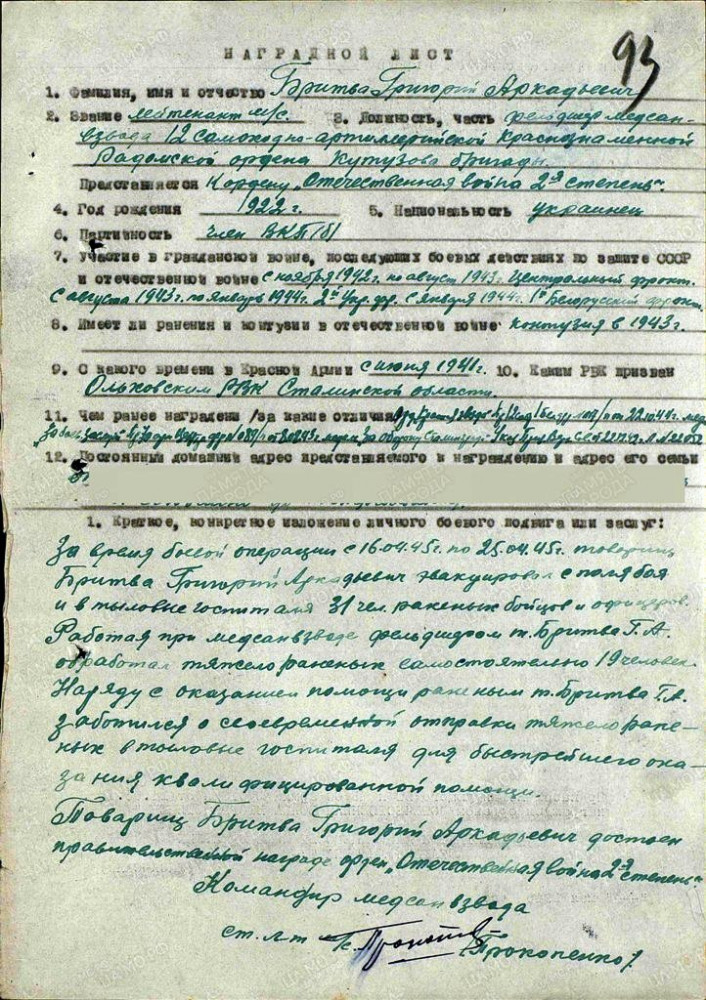 93
НАГРАДНОЙ ЛИСТ
1. Фамилия, имя и отчество Бритва Григорий Аркадьевич
2. Звание лейтенант м/с. 3. Должность, часть фельдшер медсан-
взвода 12 самоходно-артиллерийской Краснознаменной
Радомской ордена Кутузова бригады.
Представляется К ордену „Отечественная война 2й степень".
4. Год рождения 1922 г. 5. Национальность украинец
6. Партийность член ВКП(б)
7. Участие в гражданской войне, последующих боевых действиях по защите СССР
и отечественной войне с ноября 1942г. по август 1943г. Центральный фронт.
С августа 1943г. по январь 1944г. 2й Укр. фр. с января 1944г. 1й Белорусский фронт.
8. Имеет ли ранения и контузии в отечественной войне контузия в 1943г.
9. С какого времени в Красной Армии с июня 1941г. 10. Каким РВК призван
Ольховским РВК Сталинской области.
11. Чем ранее награжден /за какие отличия
12. Постоянный домашний адрес представляемого к награждению и адрес его семьи
1. Краткое, конкретное изложение личного боевого подвига или заслуг:
За время боевой операции с 16.04.45г. по 25.04.45г. товарищ
Бритва Григорий Аркадьевич эвакуировал с поля боя
и в тыловые госпиталя 31 чел. раненых бойцов и офицеров.
Работая при медсанвзводе фельдшером т. Бритва Г.А.
обработал тяжело раненых самостоятельно 19 человек.
Наряду с оказанием помощи раненым т. Бритва Г.А.
заботился о своевременной отправки тяжело ране-
ных в тыловые госпиталя для быстрейшего ока-
зания квалифицированной помощи.
Товарищ Бритва Григорий Аркадьевич достоен
правительственной награде орден „Отечественная война 2й степень".
Командир медсанвзвода
ст. л-т
/Прокопенко/